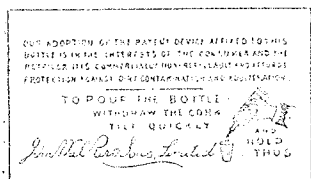 OUR ADOPTION OF THE PATENT DEVICE AFFIXED TO THIS
BOTTLE IS IN THE INTERESTS OF THE CONSUMER AND THE
RETAILER. IT IS COMMERCIALLY NON-REFILLABLE AND AFFORDS
PROTECTION AGAINST DIRT CONTAMINATION AND ADULTERATION.
TO POUR THE BOTTLE
WITHDRAW THE CORK
TILT QUICKLY
AND
HOLD
THUS
& Sons, Limited